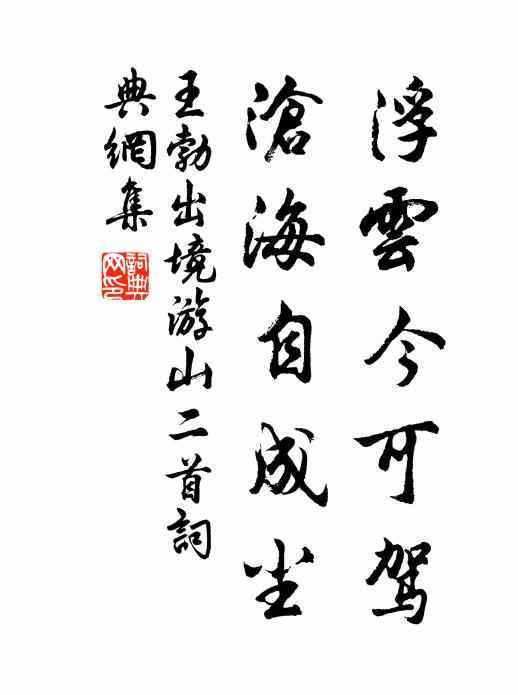 浮雲今可駕
滄海自成尘
王勃出境游山二首詞
典網集
詞典
网印